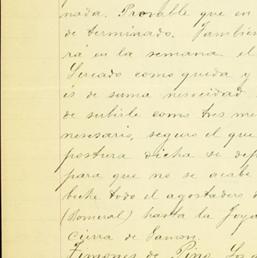 nada. Provable que en
de terminado. Tambien
rá en la semana el
Sercado como queda y
és de suma nesecidad
de subirle como tres me
nesesario, seguro el que
postura dicha se dep
para que no se acabe
bida todo el agostadero d
(Romeral) hasta la Joya
cierra de Ramon
Limones de Pino. Los a